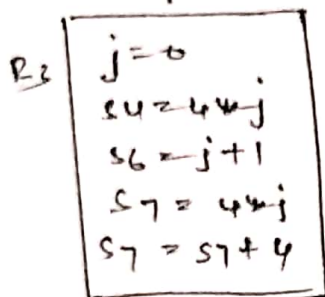 B3
j=0
s4=4*j
s6=j+1
s7=4*j
s7=s7+4